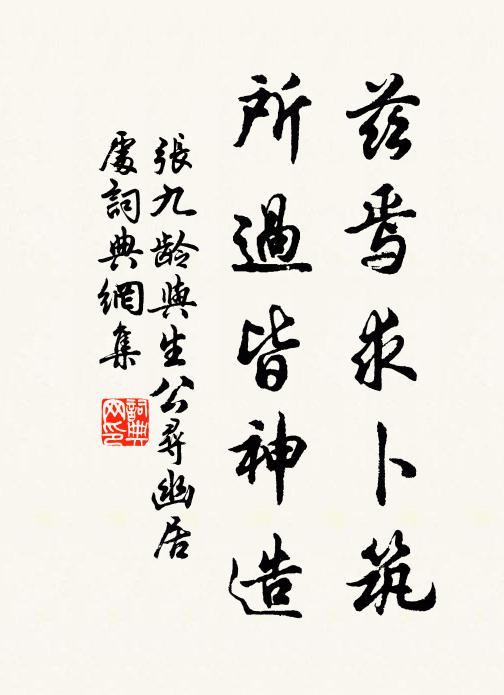 茲焉求卜筑
所過皆神造
張九齡與生公尋幽居
處詞典網集
詞典
网印